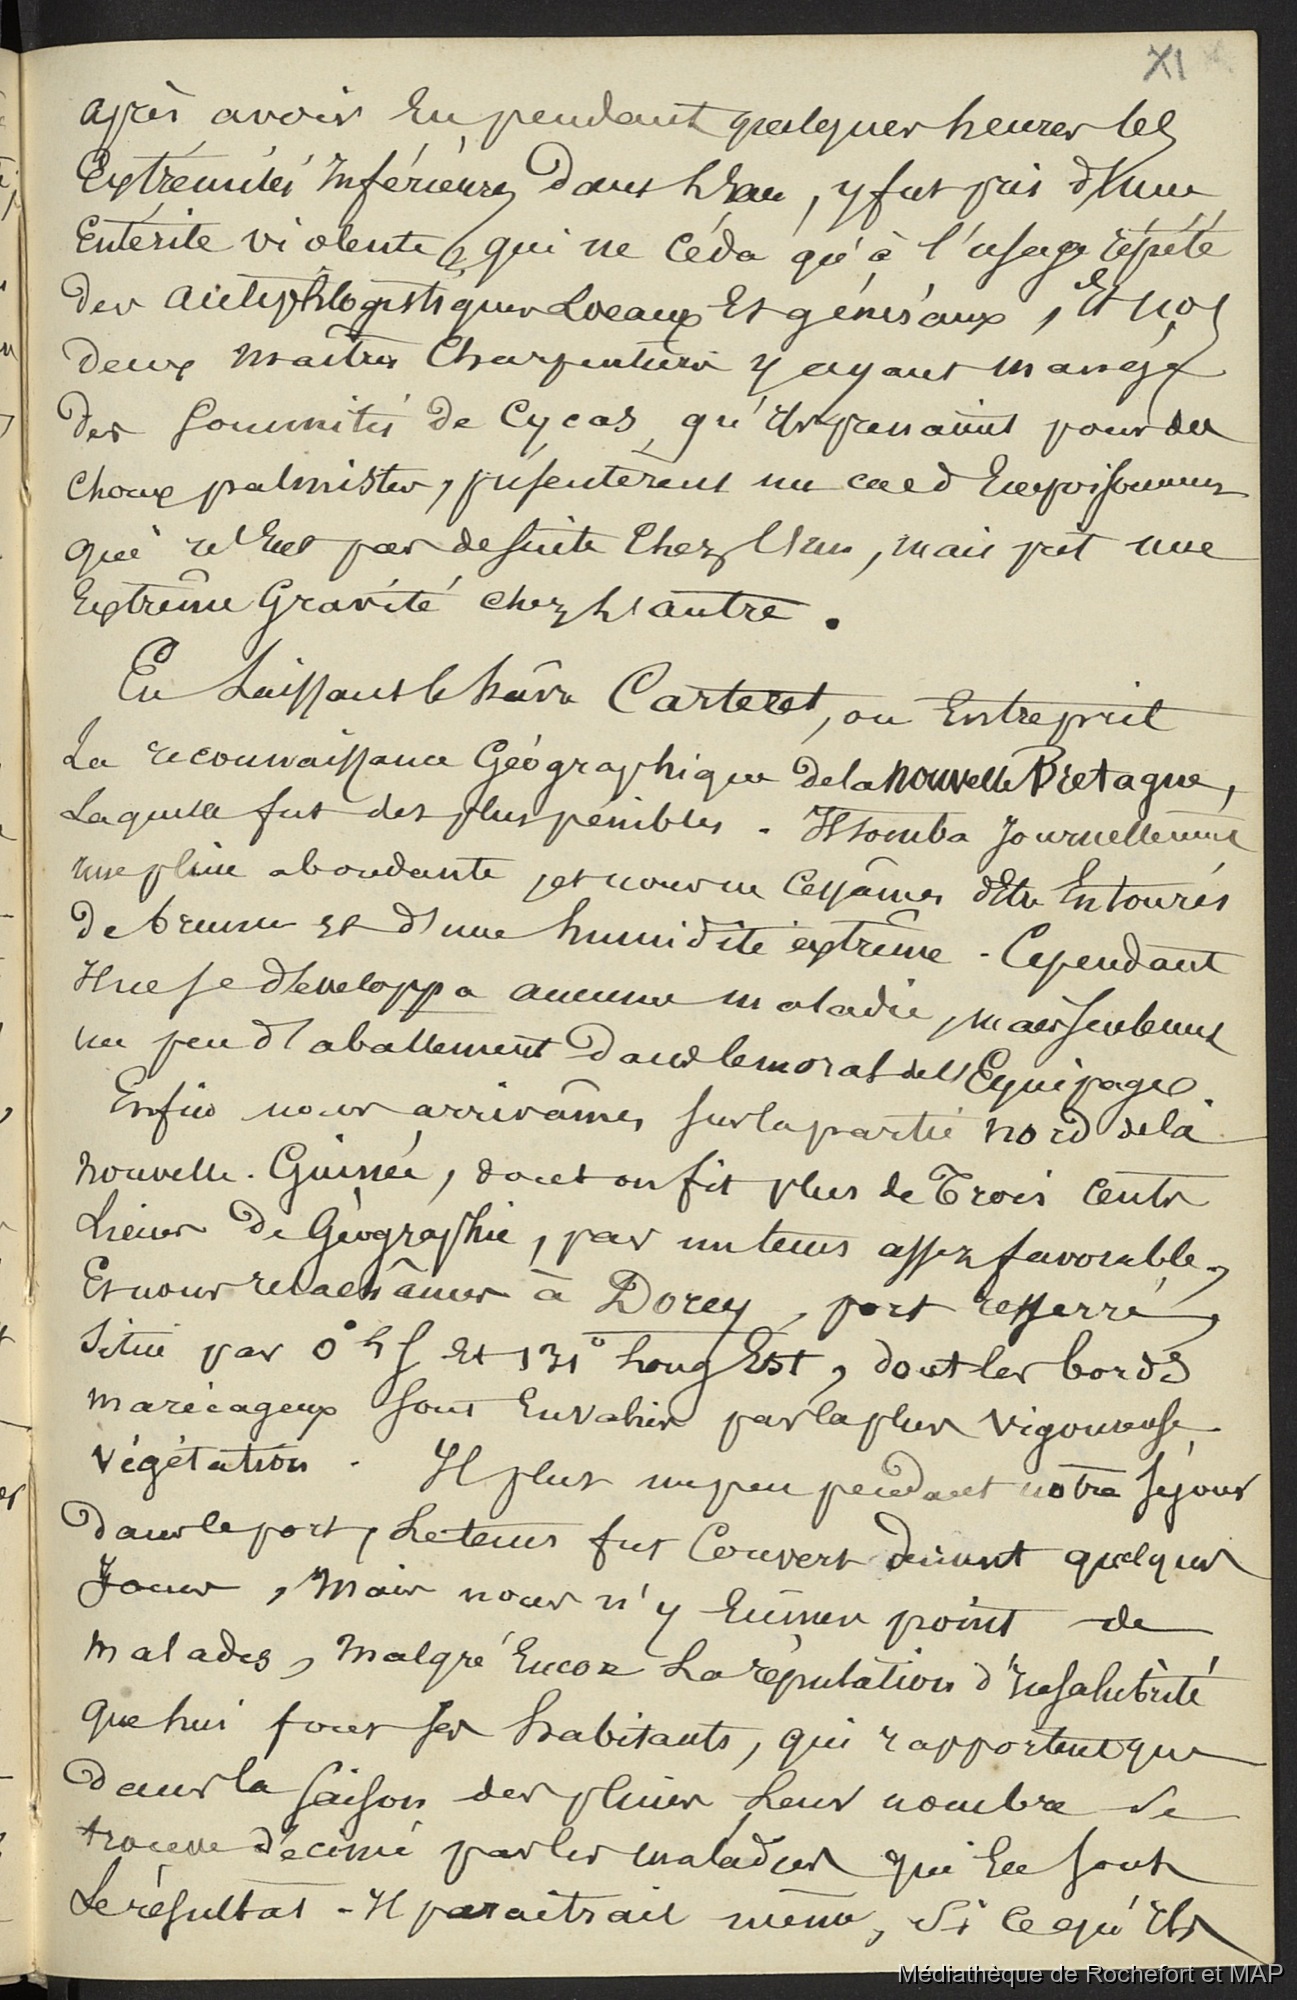 XI
après avoir eu pendant quelques heures les
Extrémités Inférieures Dans l'Eau, y fut pris d'une
Entérite violente, qui ne céda qu'à l'usage répété
Des antiphlogistiques Locaux Et généraux, Et nos
deux maîtres Charpentiers y ayant mangé
Des Sommités de Cycas, qu'ils prenaient pour des
choux palmistes, présentèrent un cas d'Empoisonnement
qui n'eut pas de suite chez l'un, mais prit une
Extrême Gravité chez l'autre.
En Laissant le hâvre Carteret, on Entreprit
La reconnaissance Géographique de la Nouvelle Bretagne,
Laquelle fut des plus pénibles. Il tomba Journellement
une pluie abondante, et nous ne cessâmes d'Etre Entourés
De brume et d'une humidité extrême. Cependant
Il ne se développa aucune maladie, mais seulement
un peu d'abattement Dans le moral de l'Equipage
Enfin nous arrivâmes sur la partie nord de la
nouvelle. Guinée, dont on fit plus de Trois cents
Lieues De Géographie, par un tems assez favorable,
Et nous relachâmes à Dorey, port resserré,
Situé par 0° L S Et 131° Long Est, dont les bords
marécageux sont Envahis par la plus vigoureuse
végétation. Il plut un peu pendant notre séjour
Dans le port, Le tems fut Couvert durant quelques
Jours, Mais nous n'y Eûmes point de
malades, malgré Encore La réputation d'Insalubrité
que lui font ses habitants, qui rapportent que
Dans la Saison des pluies Leur nombre se
trouve décimé par les maladies qui En sont
Le résultat - Il paraîtrait même, Si ce qu'ils
Médiathèque de Rochefort et MAP